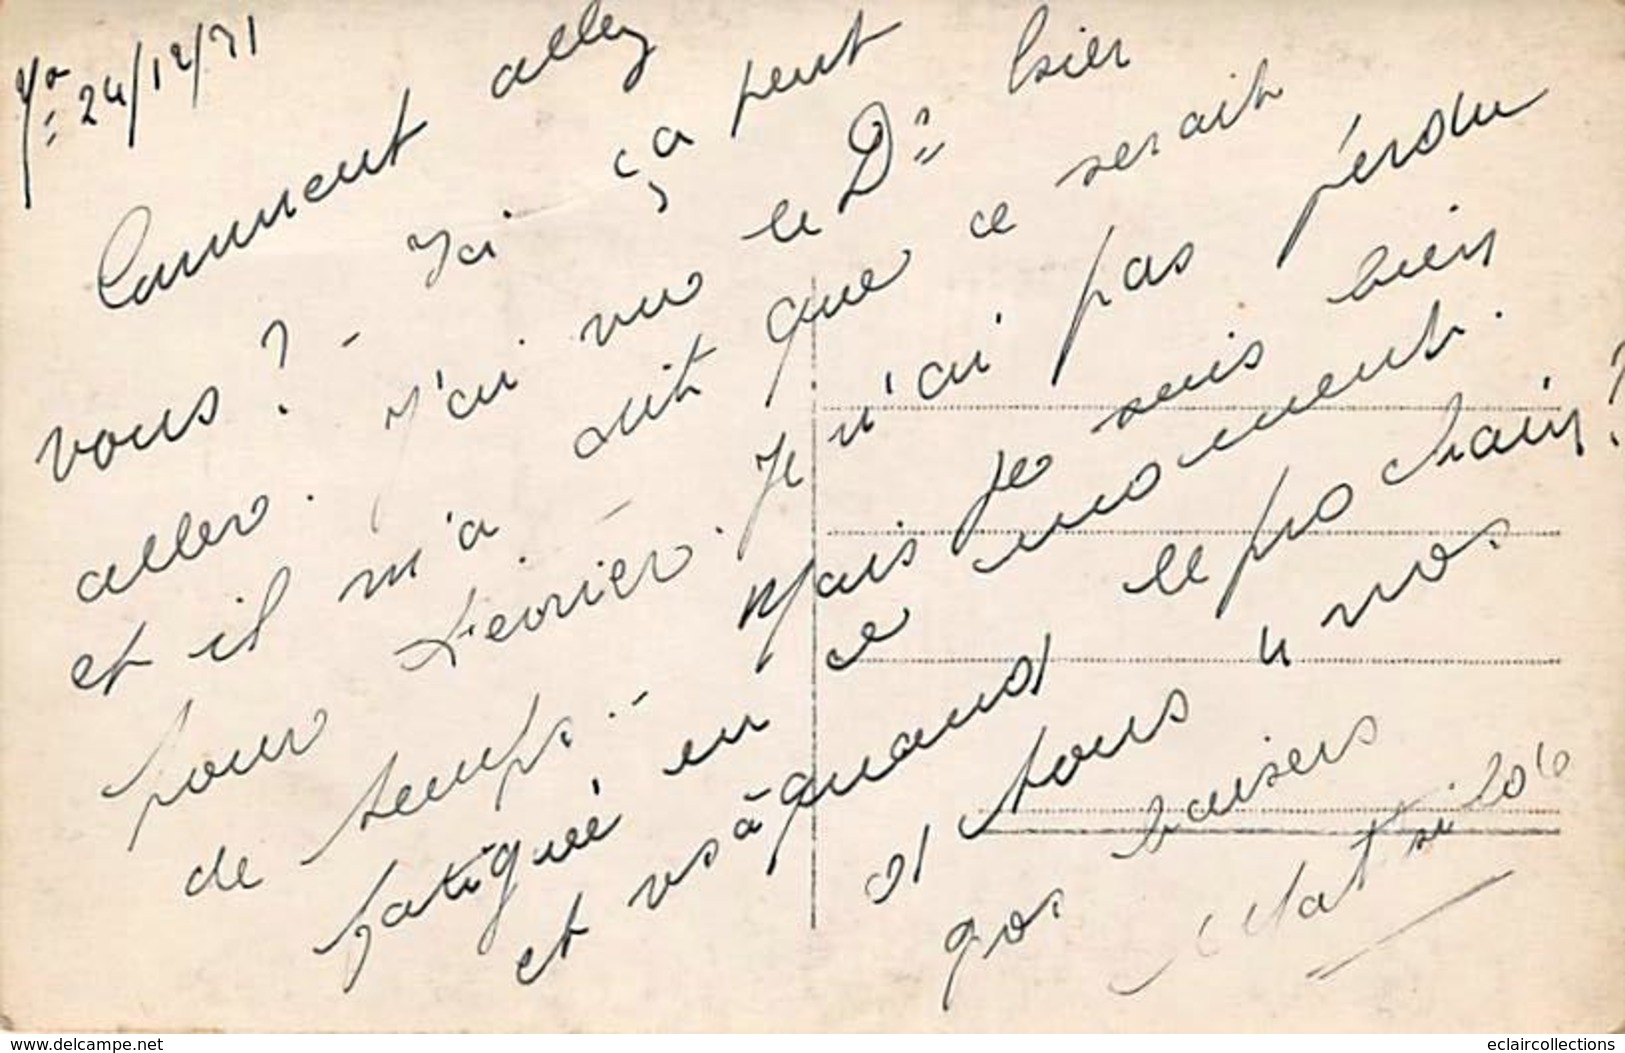 24/12/31
Comment allez
vous ? – Ici ça peut
aller. J'ai vu le Dr hier
et il m'a dit que ce serait
pour Février. Je n'ai pas perdu
de temps. – Mais je suis bien
fatiguée en ce moment.
et vs à quand le prochain ?
à tous 4 nos
gos baisers
www.delcampe.net
eclaircollections